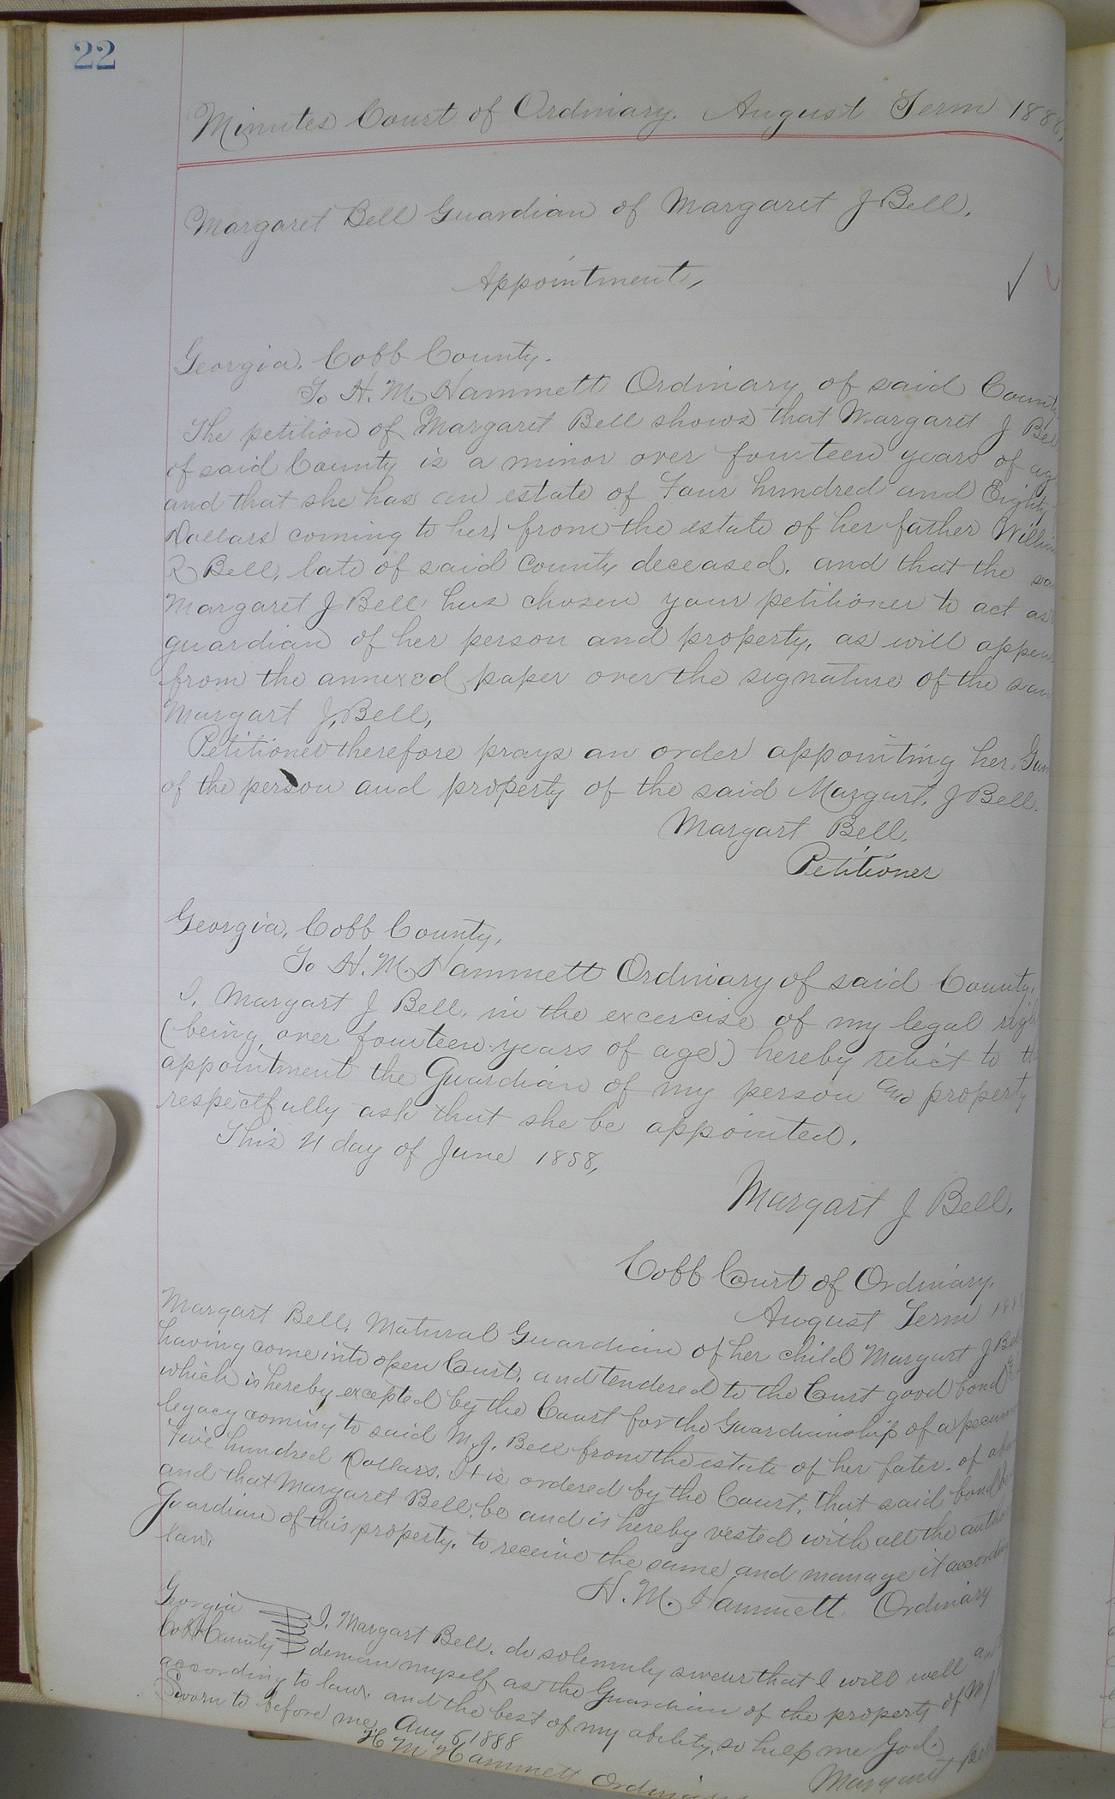 22
Minutes Court of Ordinary. August Term 1888,
Margaret Bell Guardian of Margaret J Bell.
Appointment,
Georgia. Cobb County.
To H. M. Hammett Ordinary of said County
The petition of Margaret Bell shows that Margaret J Bell
of said County is a minor over fourteen years of ag
and that she has an estate of Four hundred and Eighty
Dollars coming to her, from the estate of her father Willia
R Bell, late of said county deceased. and that the sa
Margaret J Bell has chosen your petitioner to act as
guardian of her person and property, as will appea
from the annexed paper over the signature of the sai
Margart J. Bell,
Petitioner therefore prays an order appointing her, Gua
of the person and property of the said Margart. J Bell.
Margart Bell.
Petitioner
Georgia. Cobb County,
To H. M. Hammett Ordinary of said County.
I, Margart J Bell, in the excercise of my legal righ
(being over fourteen years of age) hereby to th
appointment the Guardian of my person and property
respectfully ask that she be appointed.
This 21 day of June 1888,
Margart J Bell.
Cobb Court of Ordinary.
August Term 188
Margart Bell. Natural Guardian of her child Margart J Bell
having come into open Court, and tendered to the Court good bond
which is hereby excepted by the Court for the Guardianship of a pecun
legacy coming to said M. J. Bell from the estate of her fater. of abo
Five hundred Dollars. It is ordered by the Court, that said bond b
and that Margaret Bell, be and is hereby vested with all the autho
Guardian of this property. to receive the same and manage it accordin
law.
H. M. Hammett. Ordinary
Georgia
Cobb County
I, Margart Bell, do solemnly swear that I will well an
demean myself, as the Guardian of the property of M J
according to law, and the best of my ability, so help me God.
Sworn to before me, Aug 6, 1888
Margaret Bell
H M Hammett Ordinary